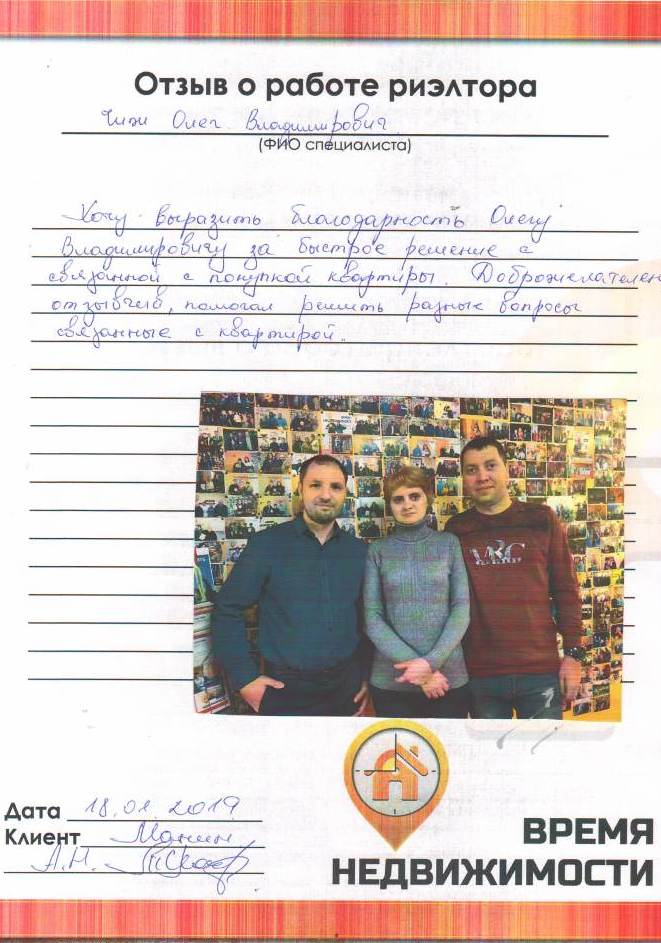 Отзыв о работе риэлтора
Чиж Олег Владимирович
(ФИО специалиста)
Хочу выразить благодарность Олегу
Владимировичу за быстрое решение с
связанной с покупкой квартиры. Доброжелателен
отзывчив, помогал решить разные вопросы
связанные с квартирой.
Дата 18.01.2019
Клиент
А.Н.
ВРЕМЯ
НЕДВИЖИМОСТИ